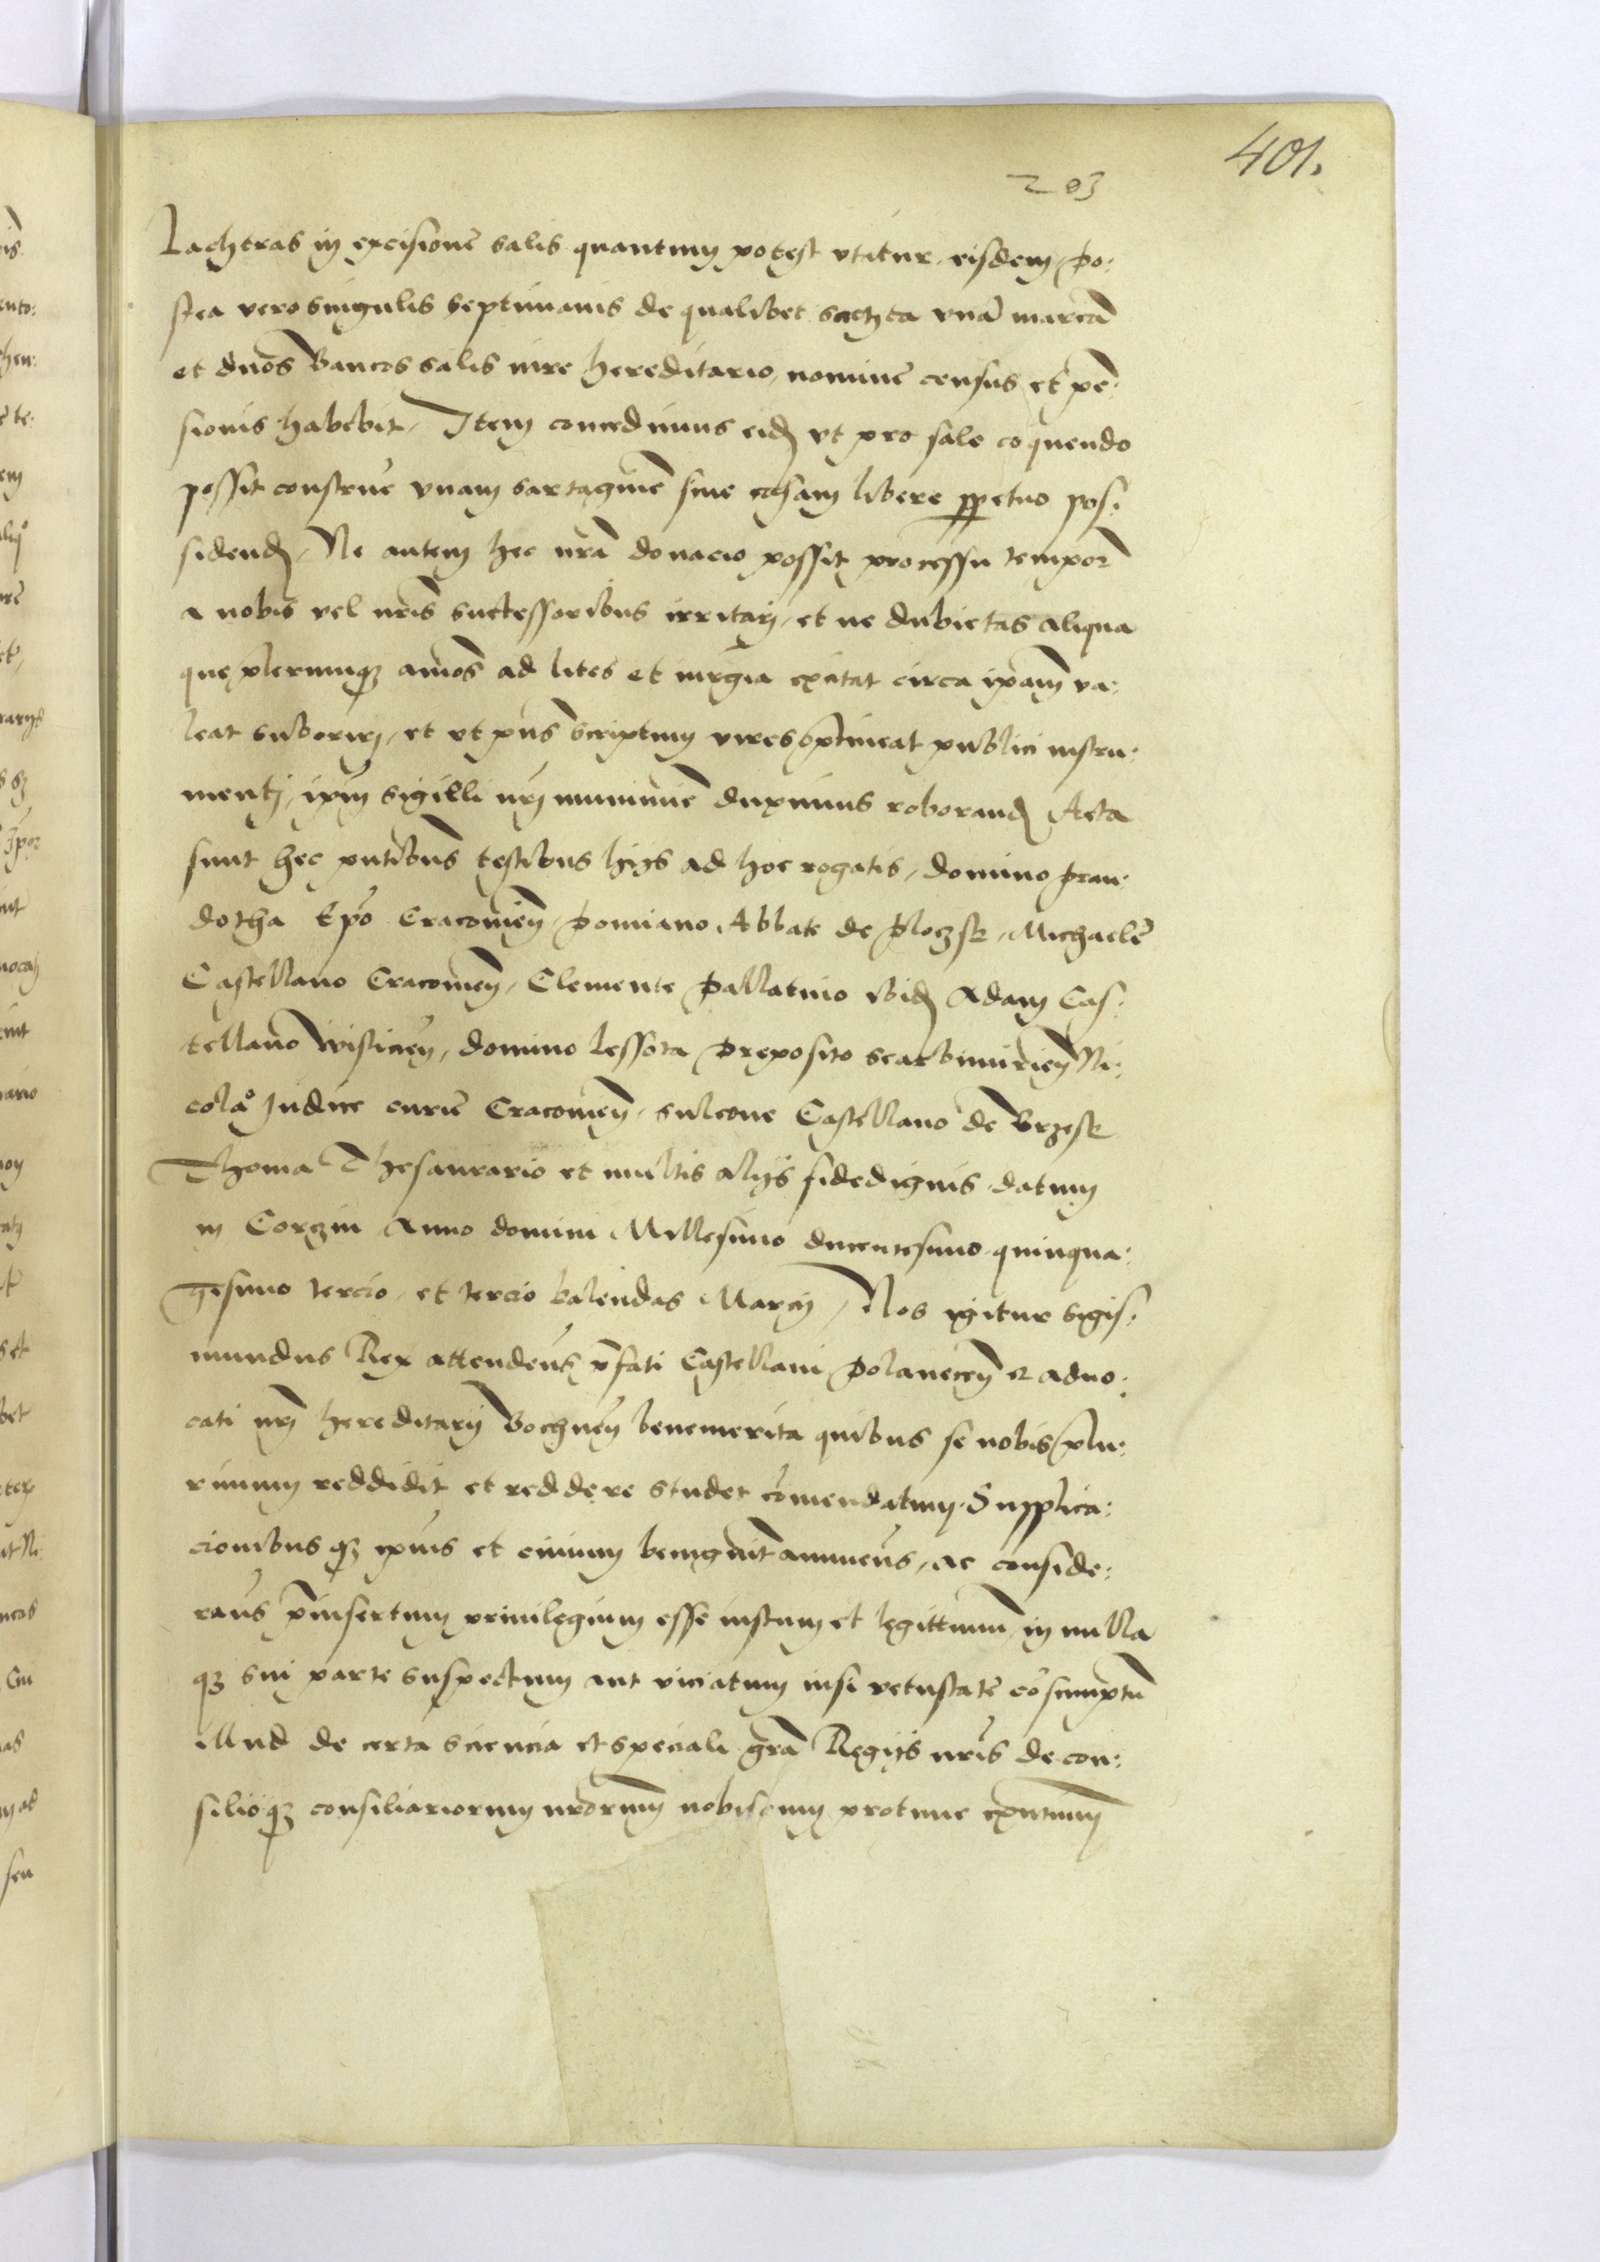 401.
203
Lachtras in excisione salis quantum potest utitur eisdem, Po:
stea vero singulis septimanis de qualibet sachta unā marcā
et duos Bancos salis iure hereditario, nomine census et pē:
sionis habebit, Item concedimus eid ut pro sale coquendo
possit construe unam sartaginē sive casam libere ppetuo pos:
sidend, Ne autem hec nrā donacio possit processu tempor
a nobis vel nris successoribus irritari, et ne dubietas aliqua
que plerumq anios ad lites et iurgia excitat circa ipam va:
leat suboriri, et ut pns scriptum vires optineat publici instru:
menti, ipm sigilli nri munimie duximus roborand Acta
sunt hec pntibus testibus hijs ad hoc rogatis, domino Pran:
dotha Epo Cracovien, Pomiano Abbate de Ploczsk, Michaele
Castellano Cracovien, Clemente Pallatino ibid Adam Cas:
tellano Vislicien, domino Lessota Preposito Scarbimirien Ni:
colao Judice curie Cracovien, Sulcone Castellano de Brzesk
Thoma Thesaurario et multis alijs fidedignis datum
in Corczin Anno domini Millesimo ducentesimo quinqua:
gesimo tercio, et tercio kalendas Marcij, Nos igitur Sigis:
mundus Rex attendens pfati Castellani Polanecen et advo:
cati nri hereditarij Bochnen benemerita quibus se nobis plu:
rimum reddidit et reddere studet comendatum. Supplica:
cionibus q ipius et civium benignit annuens, ac conside:
rans pinsertum privilegium esse iustum et legittimum, in nulla
q sui parte suspectum aut viciatum nisi vetustate consumptū
illud de certa sciencia et speciali grā Regijs nris de con:
silioq consiliariorum nrorum nobiscum protunc exntium